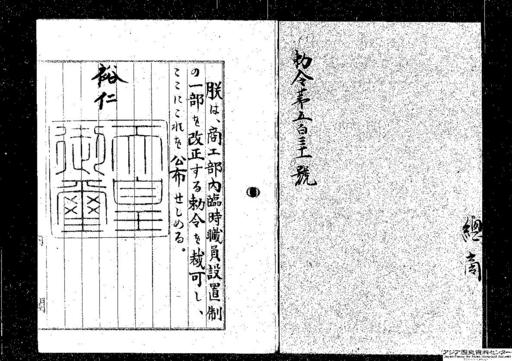 勅令第五百三十一號
總
商
朕は、商工部內臨時職員設置制
の一部を改正する勅令を裁可し、
ここにこれを公布せしめる。
裕仁
天皇
御璽
アジア歴史資料センター